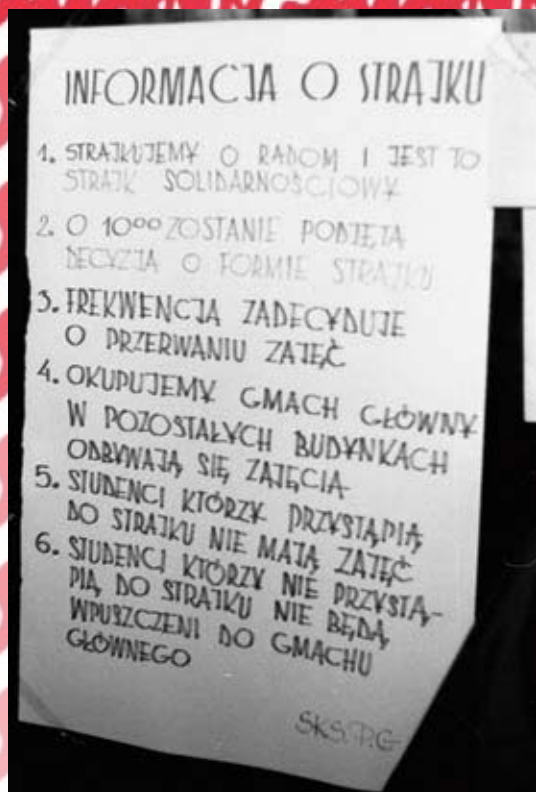 INFORMACJA O STRAJKU
1. STRAJKUJEMY O RADOM I JEST TO
STRAJK SOLIDARNOŚCIOWY
2. O 10⁰⁰ ZOSTANIE PODJĘTA
DECYZJA O FORMIE STRAJKU
3. FREKWENCJA ZADECYDUJE
O PRZERWANIU ZAJĘĆ
4. OKUPUJEMY GMACH GŁÓWNY
W POZOSTAŁYCH BUDYNKACH
ODBYWAJĄ SIĘ ZAJĘCIA
5. STUDENCI KTÓRZY PRZYSTĄPIĄ
DO STRAJKU NIE MAJĄ ZAJĘĆ
6. STUDENCI KTÓRZY NIE PRZYSTĄ-
PIĄ DO STRAJKU NIE BĘDĄ
WPUSZCZENI DO GMACHU
GŁÓWNEGO
SKS. P.G